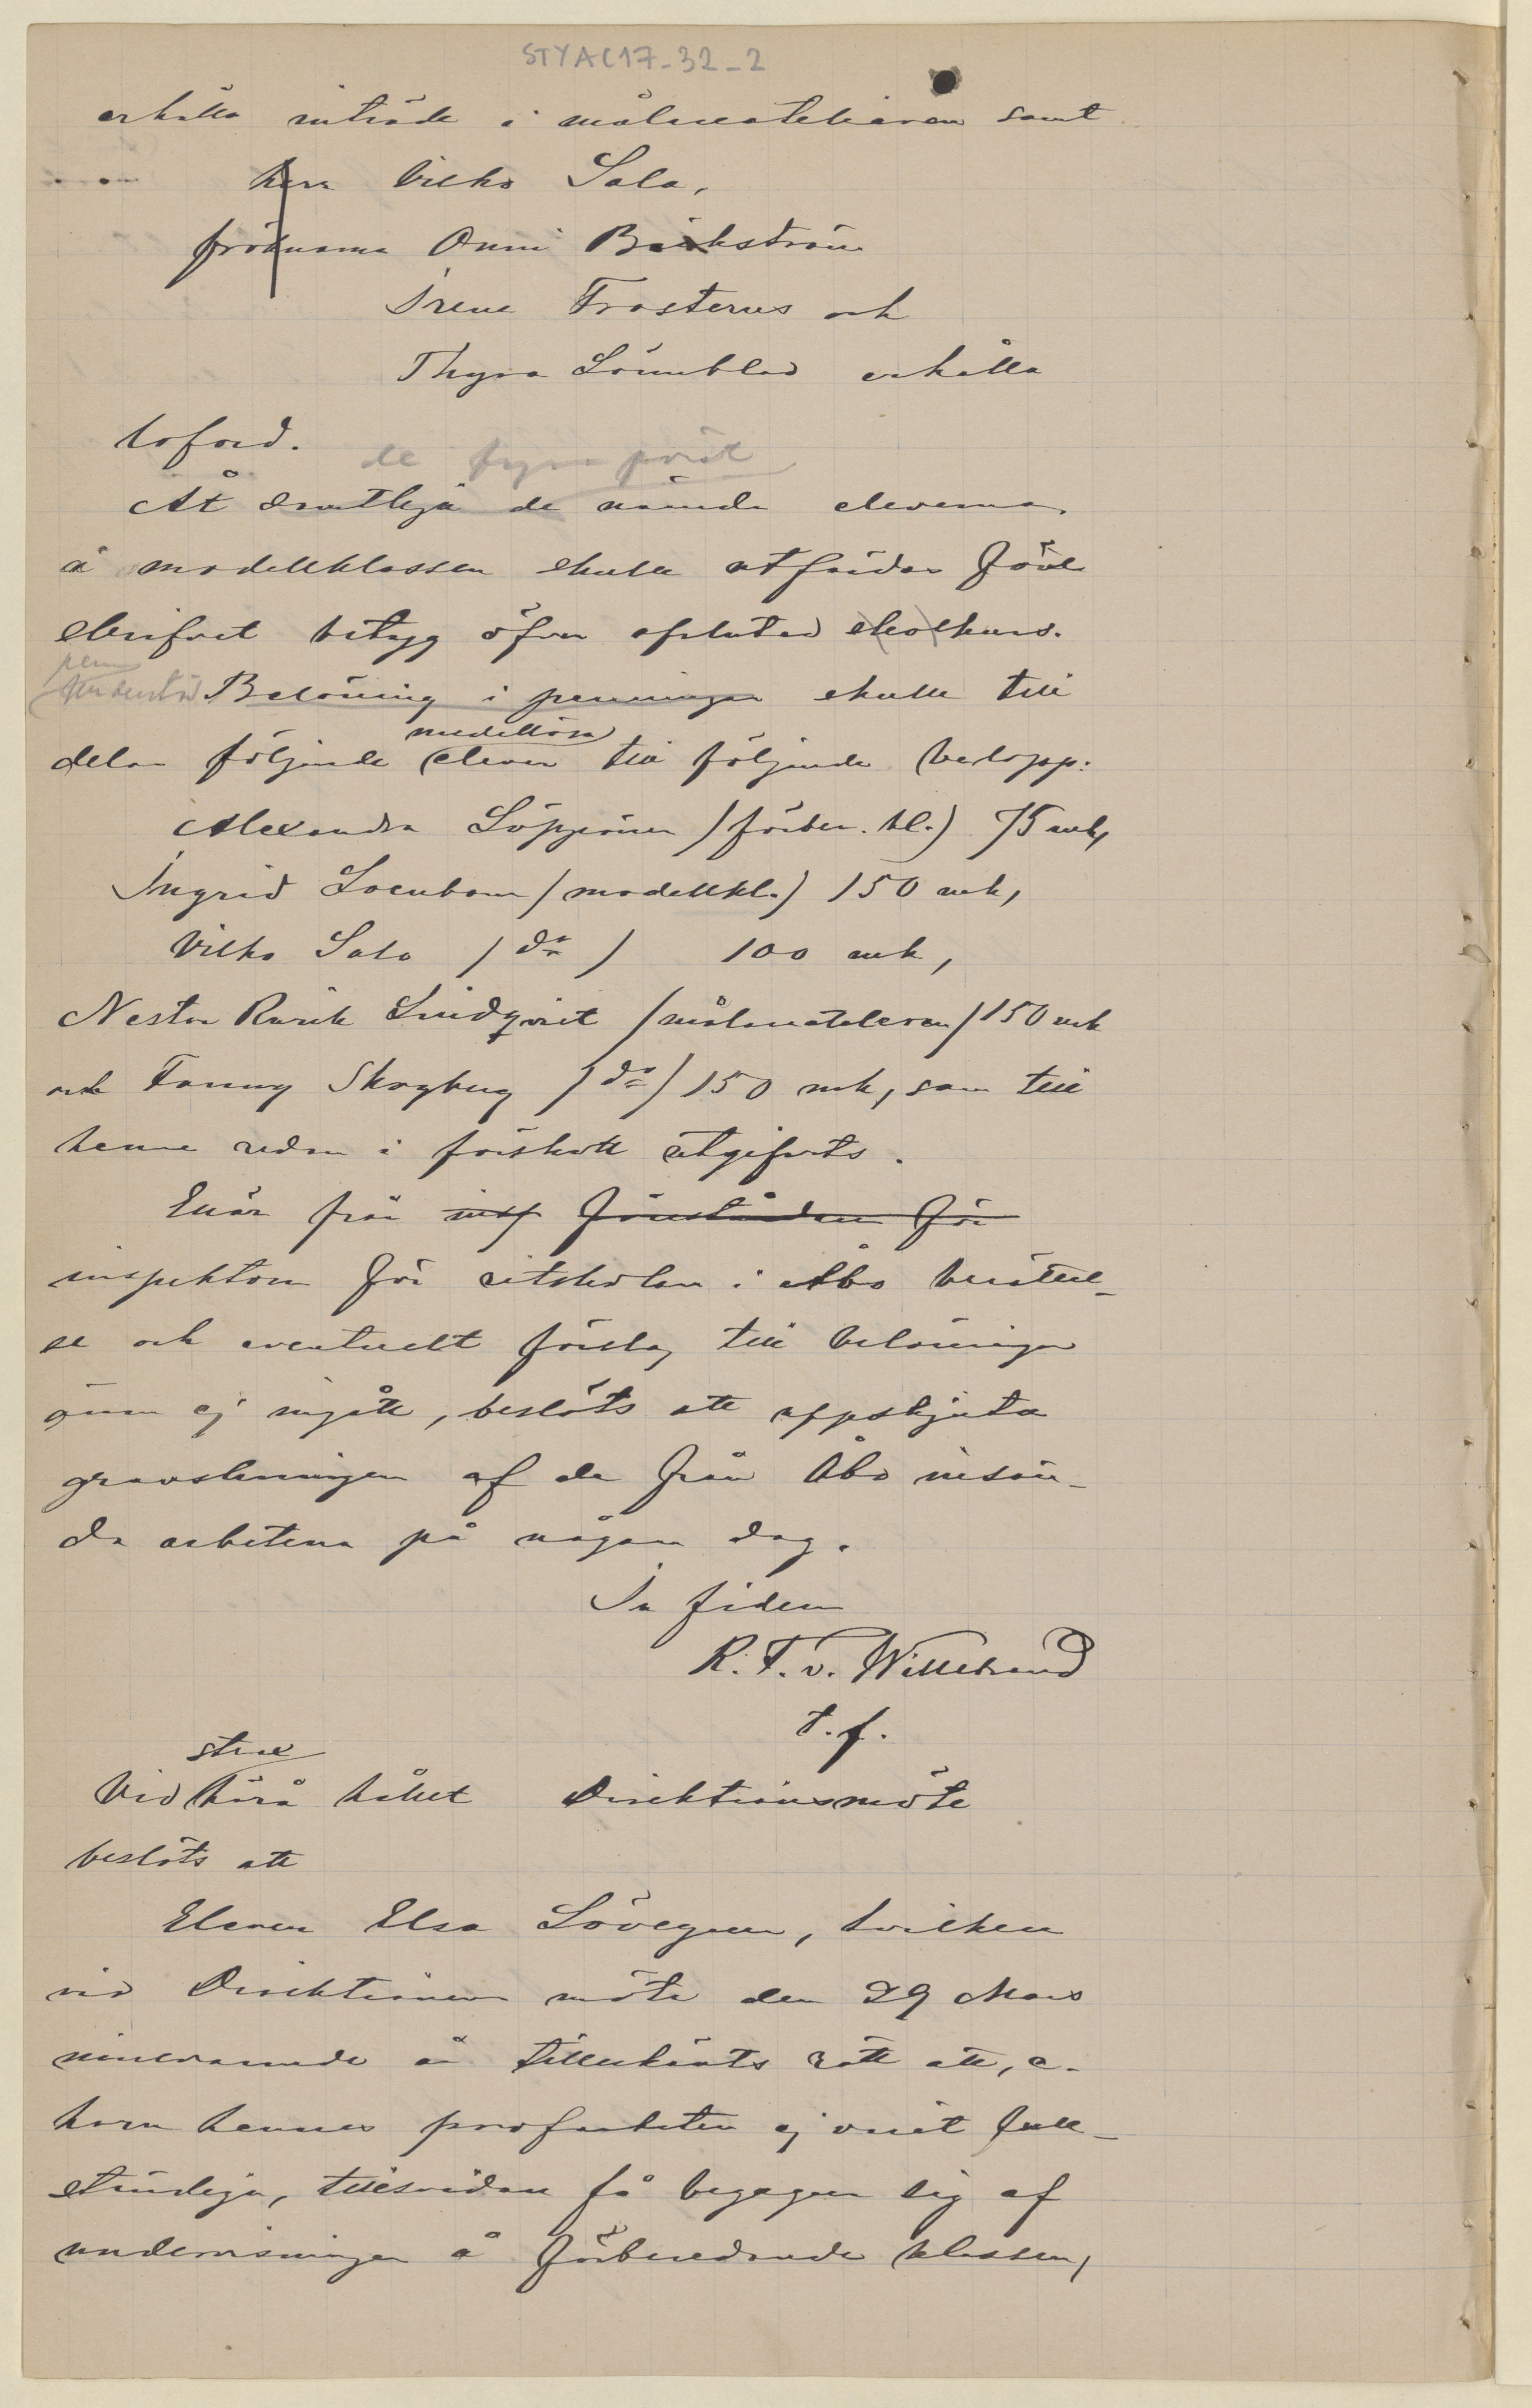 STYA C17-32-2
erhålla inträde i målareateliéren samt
herr Vilho Sala,
fröknarna Onni Bäckström
Irene Frosterus och
Thyra Lönnblad erhålla
loford.
de fyra förot
Åt samtliga de nämnda eleverna
å modellklassen skulle utfärdas före
skrifvet betyg öfver afslutad skolkurs.
penn
understöd Belöning i penningar skulle till
medellösa
delas följande elever till följande belopp:
Alexandra Löppönen (förber. kl.) 75 mk,
Ingrid Locnbom (modellkl.) 150 mk,
Vilho Sala (do) 100 mk,
Nestor Rurik Lindqvist (målareateliéren) 150 mk
och Fanny Skogberg (do) 150 mk, som till
henne redan i förskott utgifvits.
Enär från insp föreståndaren för
inspektorn för ritskolan i Åbo berättel-
se och eventuelt förslag till belöningar
ännu ej ingått, beslöts att uppskjuta
granskningen af de från Åbo insän-
da arbetena på någon dag.
In fidem
R. F. v. Willebrand
t. f.
strax
Vid härå hållet Direktionsmöte
beslöts att
Eleven Elsa Lövegren, hvilken
vid Direktionens möte den 29 Mars
innevarande år tillerkänts rätt att, e-
huru hennes profarbeten ej varit full-
ständiga, tillsvidare få begagna sig af
undervisningen å förberedande klassen,